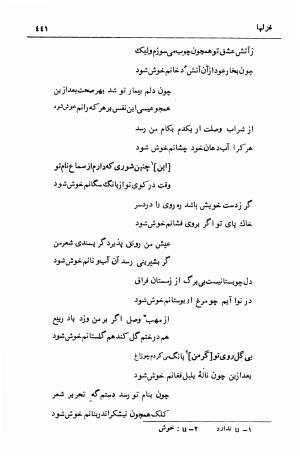 غزلها
۴۴۱
ز آتش عشق تو همچون چوب می سوزم ولیک
چون بخار عود از آن آتش دخانم خوش شود
چون دلم بیمار تو شد بهر صحت بعد ازین
همچو عیسی این نفس بر هر که رانم خوش شود
از شراب وصلت ار یکدم بکام من رسد
هر کرا آب دهان خود چشانم خوش شود
[این]۱ چنین شوری که دارم از سماع نام تو
وقت در کوی تو از بانگ سگانم خوش شود
گر ز دست خویش باشد ره روی را درد سر
خاک پای تو اگر بروی فشانم خوش شود
عیش من رونق پذیرد گر پسندی شعر من
گر بشیرینی رسد آن آب و نانم خوش شود
دل چو بستانیست بی برگ از زمستان فراق
در نوا آیم چو مرغ ار بوستانم خوش شود
از مهب۲ وصل اگر بر من وزد باد ربیع
هم درختم گل کند هم گلستانم خوش شود
بی گل روی تو [گر من] بانگ می کردم چو زاغ
بعد ازین چون نالهٔ بلبل فغانم خوش شود
چون بنام تو رسد دستم گه تحریر شعر
کلک همچون نیشکر اندر بنانم خوش شود
۱- u ندارد ۲- u : خوش